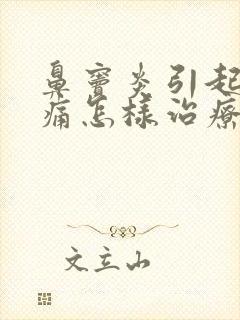 鼻窦炎引起
痛怎样治疗
文立山